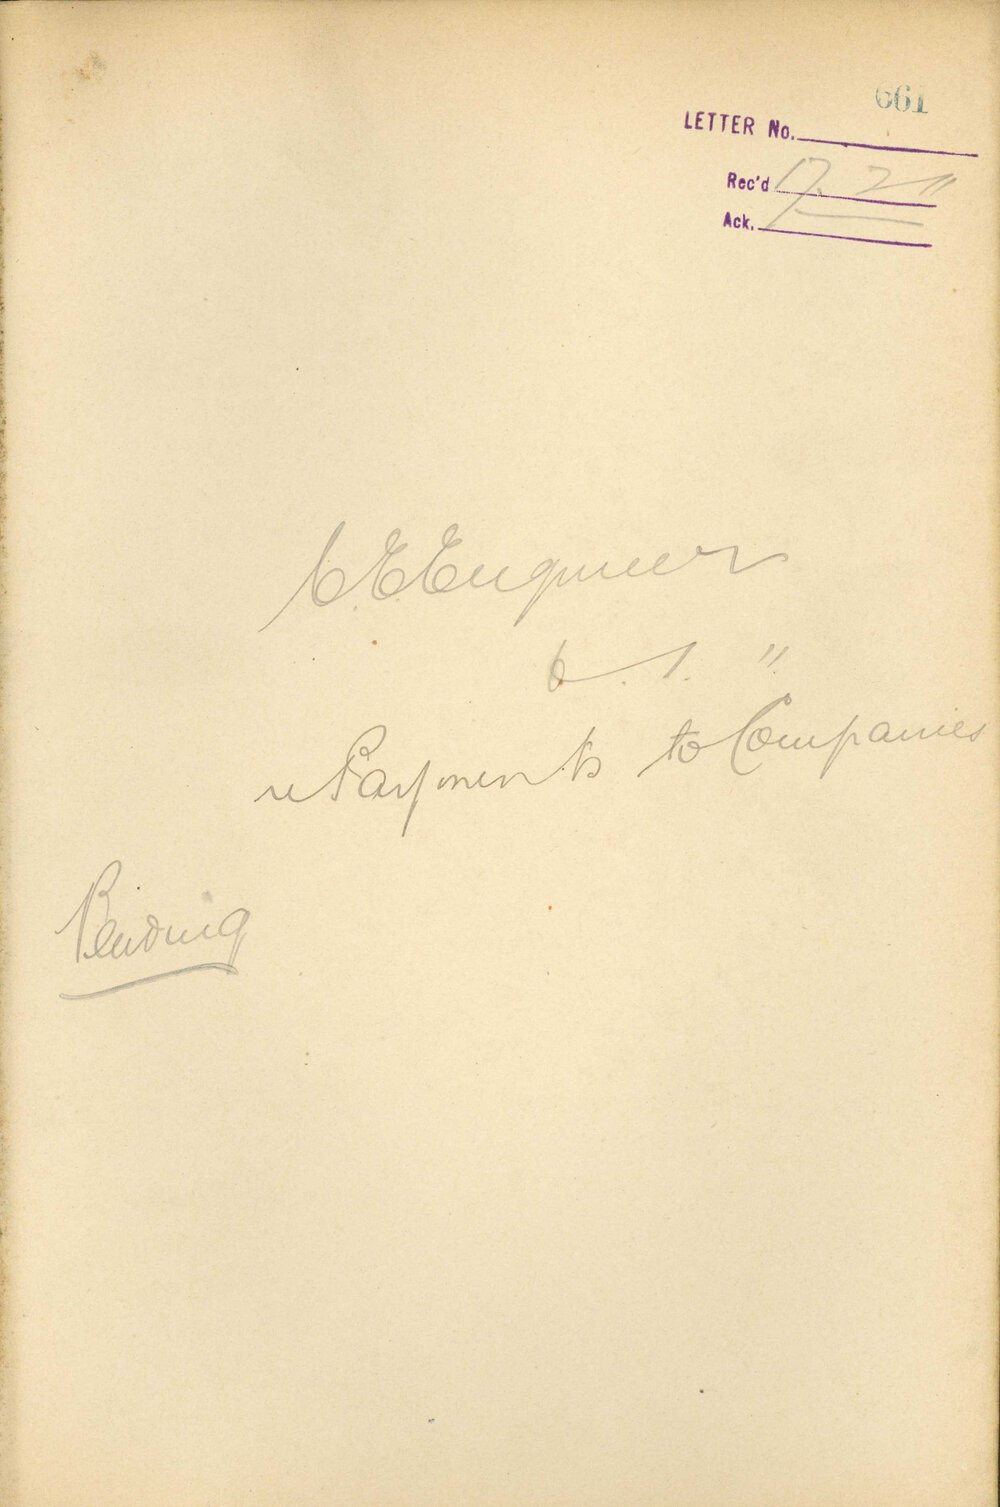 661
LETTER No.
Rec'd 17. 2 "
Ack.
C. E. Engineer
6. 1. "
re Payments to Companies
Pending